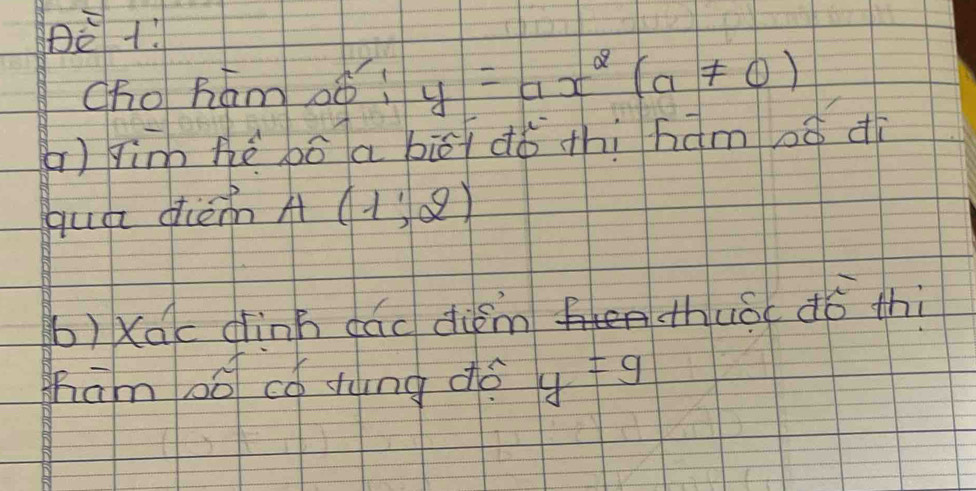 Đề 1:
Cho hàm số: y = ax² (a ≠ 0)
a) Tìm hệ số a biết đồ thị hàm số đi
qua điểm A (1; 2)
b) Xác định các điểm thuộc đồ thị
hàm số có tung độ y = 9